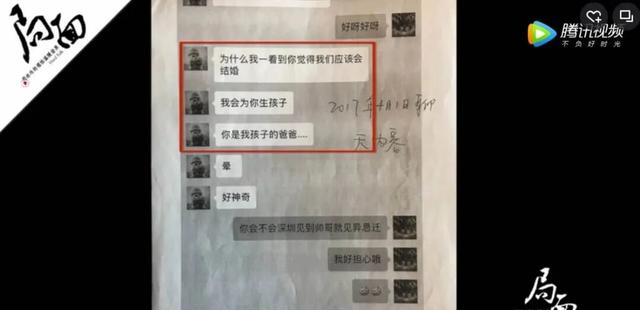 局面
腾讯视频
不负好时光
好呀好呀
为什么我一看到你觉得我们应该会
结婚
我会为你生孩子
2017年4月1日聊
你是我孩子的爸爸....
天为幕
晕
好神奇
你会不会深圳见到帅哥就见异思迁
我好担心哦
局面